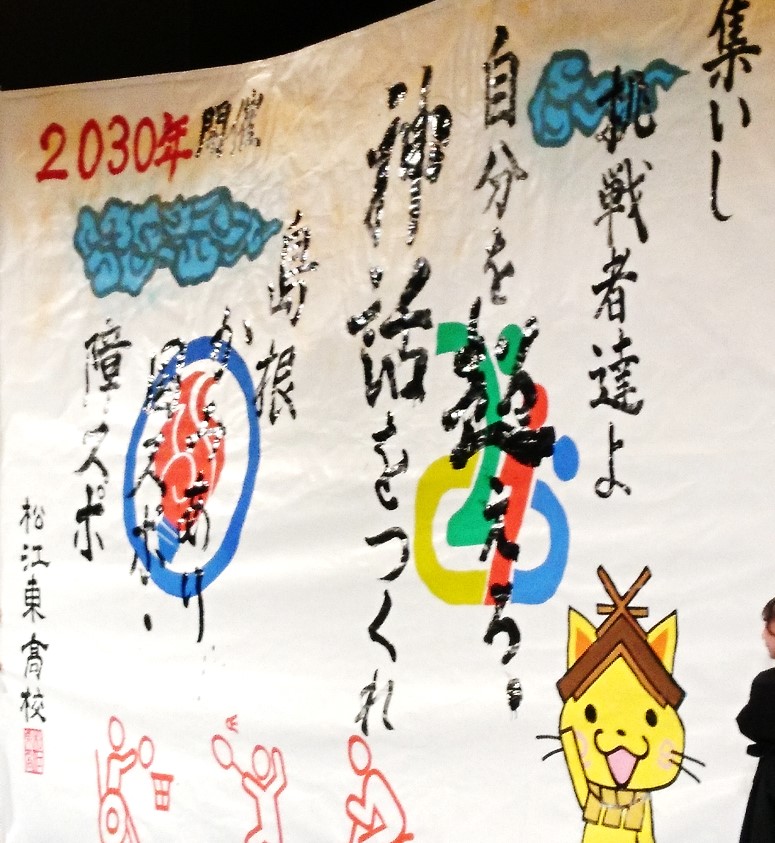 集いし
挑戦者達よ
自分を超えろ
神話をつくれ
2030年開催
島根
かみあり
国スポ・
障スポ
松江東高校